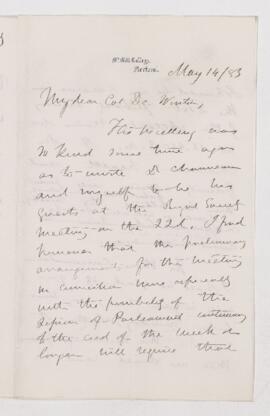 McGill College,
Montreal.
May 14/83
My dear Col De Winton,
His Excellency was
so kind some time ago
as to invite Dr Chauveau
and myself to be his
guests at the Royal Society
meeting on the 22d. I find
however that the preliminary
arrangements for the meeting
in connection more especially
with the possibility of the
Session of Parliament continuing
to the end of the week or
longer will require that